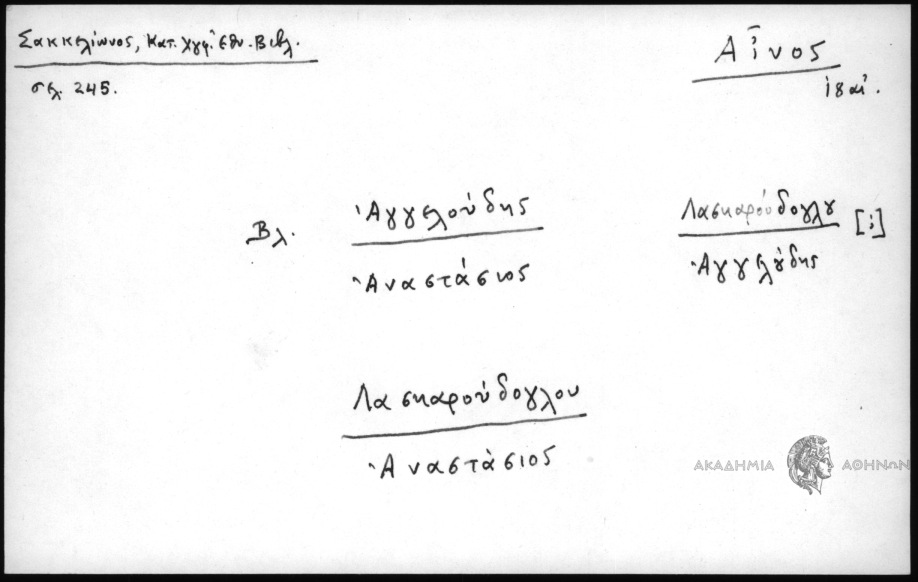 Σακκελίωνος, Κατ. χγφ. Ἐθν. Βιβλ.
σελ. 245.
Αἶνος
ιη αἰ.
Βλ.
Ἀγγελούδης
Ἀναστάσιος
Λασκαρούδογλου [;]
Ἀγγελούδης
Λασκαρούδογλου
Ἀναστάσιος
ΑΚΑΔΗΜΙΑ ΑΘΗΝΩΝ